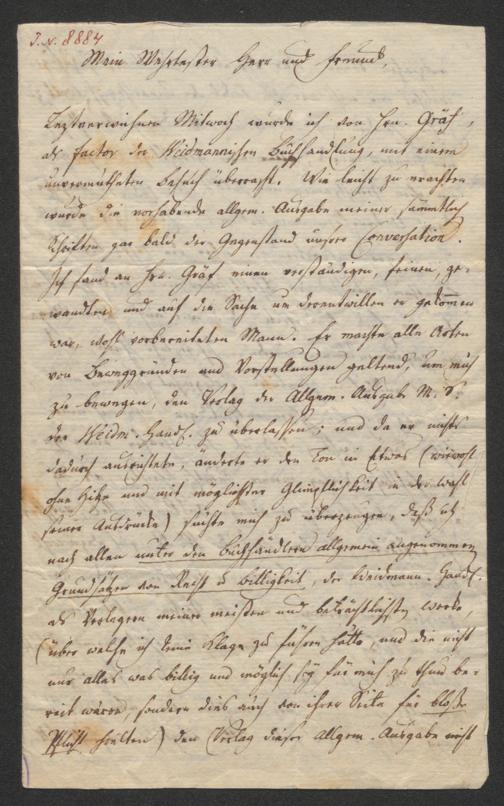 I. N. 8884
Mein Wehrtester Herr und Freund,
Leztverwichnen Mitwoch wurde ich von Hrn. Gräf,
als Factor der Weidmannischen Buchhandlung, mit einem
unvermutheten Besuch überrascht. Wie leicht zu erachten
wurde die vorhabende allgem. Ausgabe meiner sämmtlich
Schriften gar bald der Gegenstand unsrer Conversation.
Ich fand an Hrn. Gräf einen verständigen, feinen, ge-
wandten und auf die Sache um derentwillen er gekommen
war, wohl vorbereiteten Mann. Er machte alle Arten
von Beweggründen und Vorstellungen geltend, um mich
zu bewegen, den Verlag der Allgem. Ausgabe M. S.
der Weidm. Handl. zu überlassen; und da er nichts
dadurch ausrichtete, änderte er den Ton in Etwas (wiewohl
ohne Hitze und mit möglichster Glimpflichkeit in der Wahl
seiner Ausdrücke) suchte mich zu überzeugen, daß ich
nach allen unter den Buchhändlern allgemein angenommen
Grundsätzen von Recht u billigkeit, der Weidmann. Handl.
als Verlegern meiner meisten und beträchtlichsten werke,
(über welche ich keine Klage zu führen hätte, und die nicht
nur alles was billig und möglich sey für mich zu thun be-
reit wären, sondern dies auch von ihrer Seite für bloße
Pflicht hielten) den Verlag dieser Allgem. Ausgabe nicht